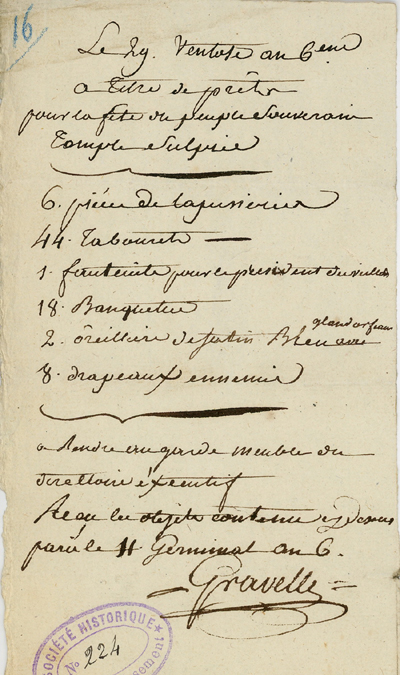 16
Le 29. Ventose an 6eme
a titre de prêts
pour la fête du peuple souverain
Temple Sulpice
6. pièces de tapisseries
44. Tabourets
1. fauteuile pour le président du
18. Banquettes
2. oreilliers de satin Bleu avec
gland or
8. drapeaux ennemis
a Rendre au garde meuble du
directoire éxécutif
Reçu les objets contenus cy dessus
paris le 11 Germinal an 6.
Gravelle
SOCIÉTÉ HISTORIQUE
No 224